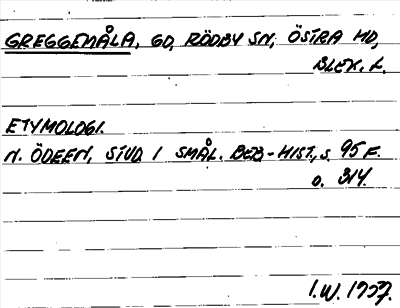 GREGGEMÅLA, GD, RÖDBY SN; ÖSTRA HD,
BLEK. L.
ETYMOLOGI.
N. ÖDEEN, STUD. I SMÅL. BEB-HIST., s. 95 F.
o. 314.
I.W. 1957.